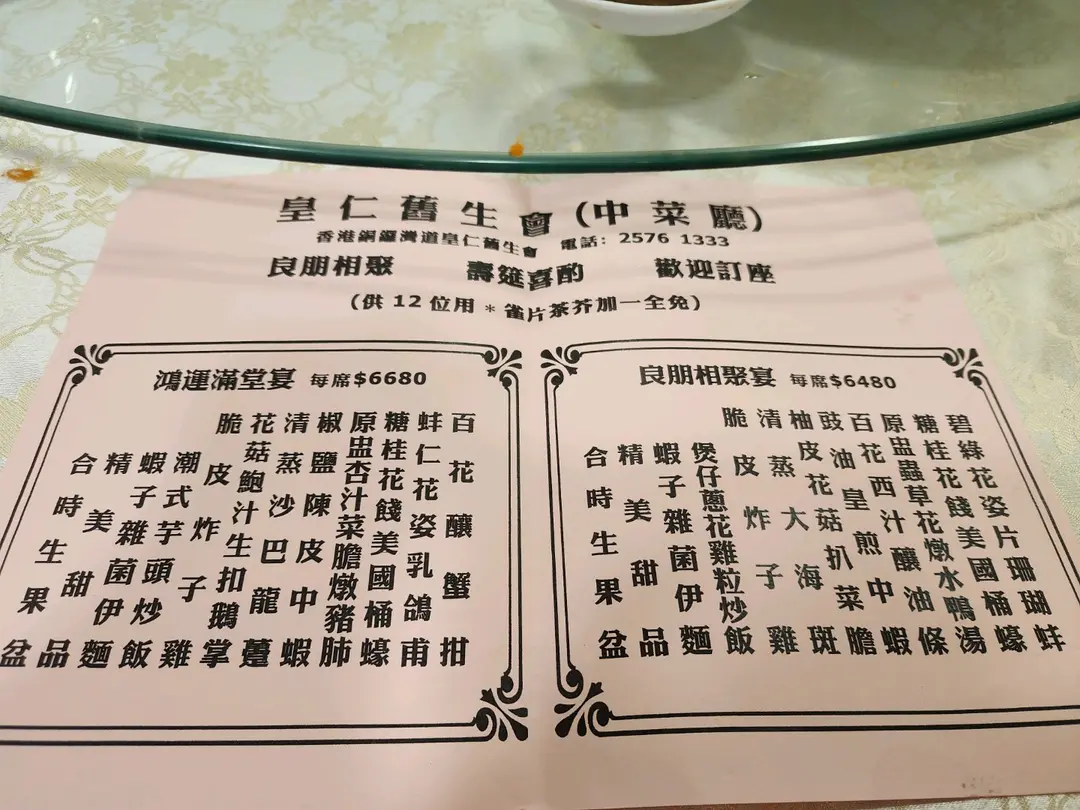 皇仁舊生會(中菜廳)
香港銅鑼灣道皇仁舊生會 電話: 2576 1333
良朋相聚 壽筵喜酌 歡迎訂座
(供 12 位用 * 雀片茶芥加一全免)
鴻運滿堂宴 每席$6680
百花釀蟹拑
蚌仁花姿乳鴿甫
糖桂花餞美國桶蠔
原盅杏汁菜膽燉豬肺
椒鹽陳皮中蝦
清蒸沙巴龍躉
花菇鮑汁生扣鵝掌
脆皮炸子雞
潮式芋頭炒飯
蝦子雜菌伊麵
精美甜品
合時生果盆
良朋相聚宴 每席$6480
碧綠花姿片珊瑚蚌
糖桂花餞美國桶蠔
原盅蟲草花燉水鴨湯
百花西汁釀油條
豉油皇煎中蝦
柚皮花菇扒菜膽
清蒸大海斑
脆皮炸子雞
煲仔蔥花雞粒炒飯
蝦子雜菌伊麵
精美甜品
合時生果盆